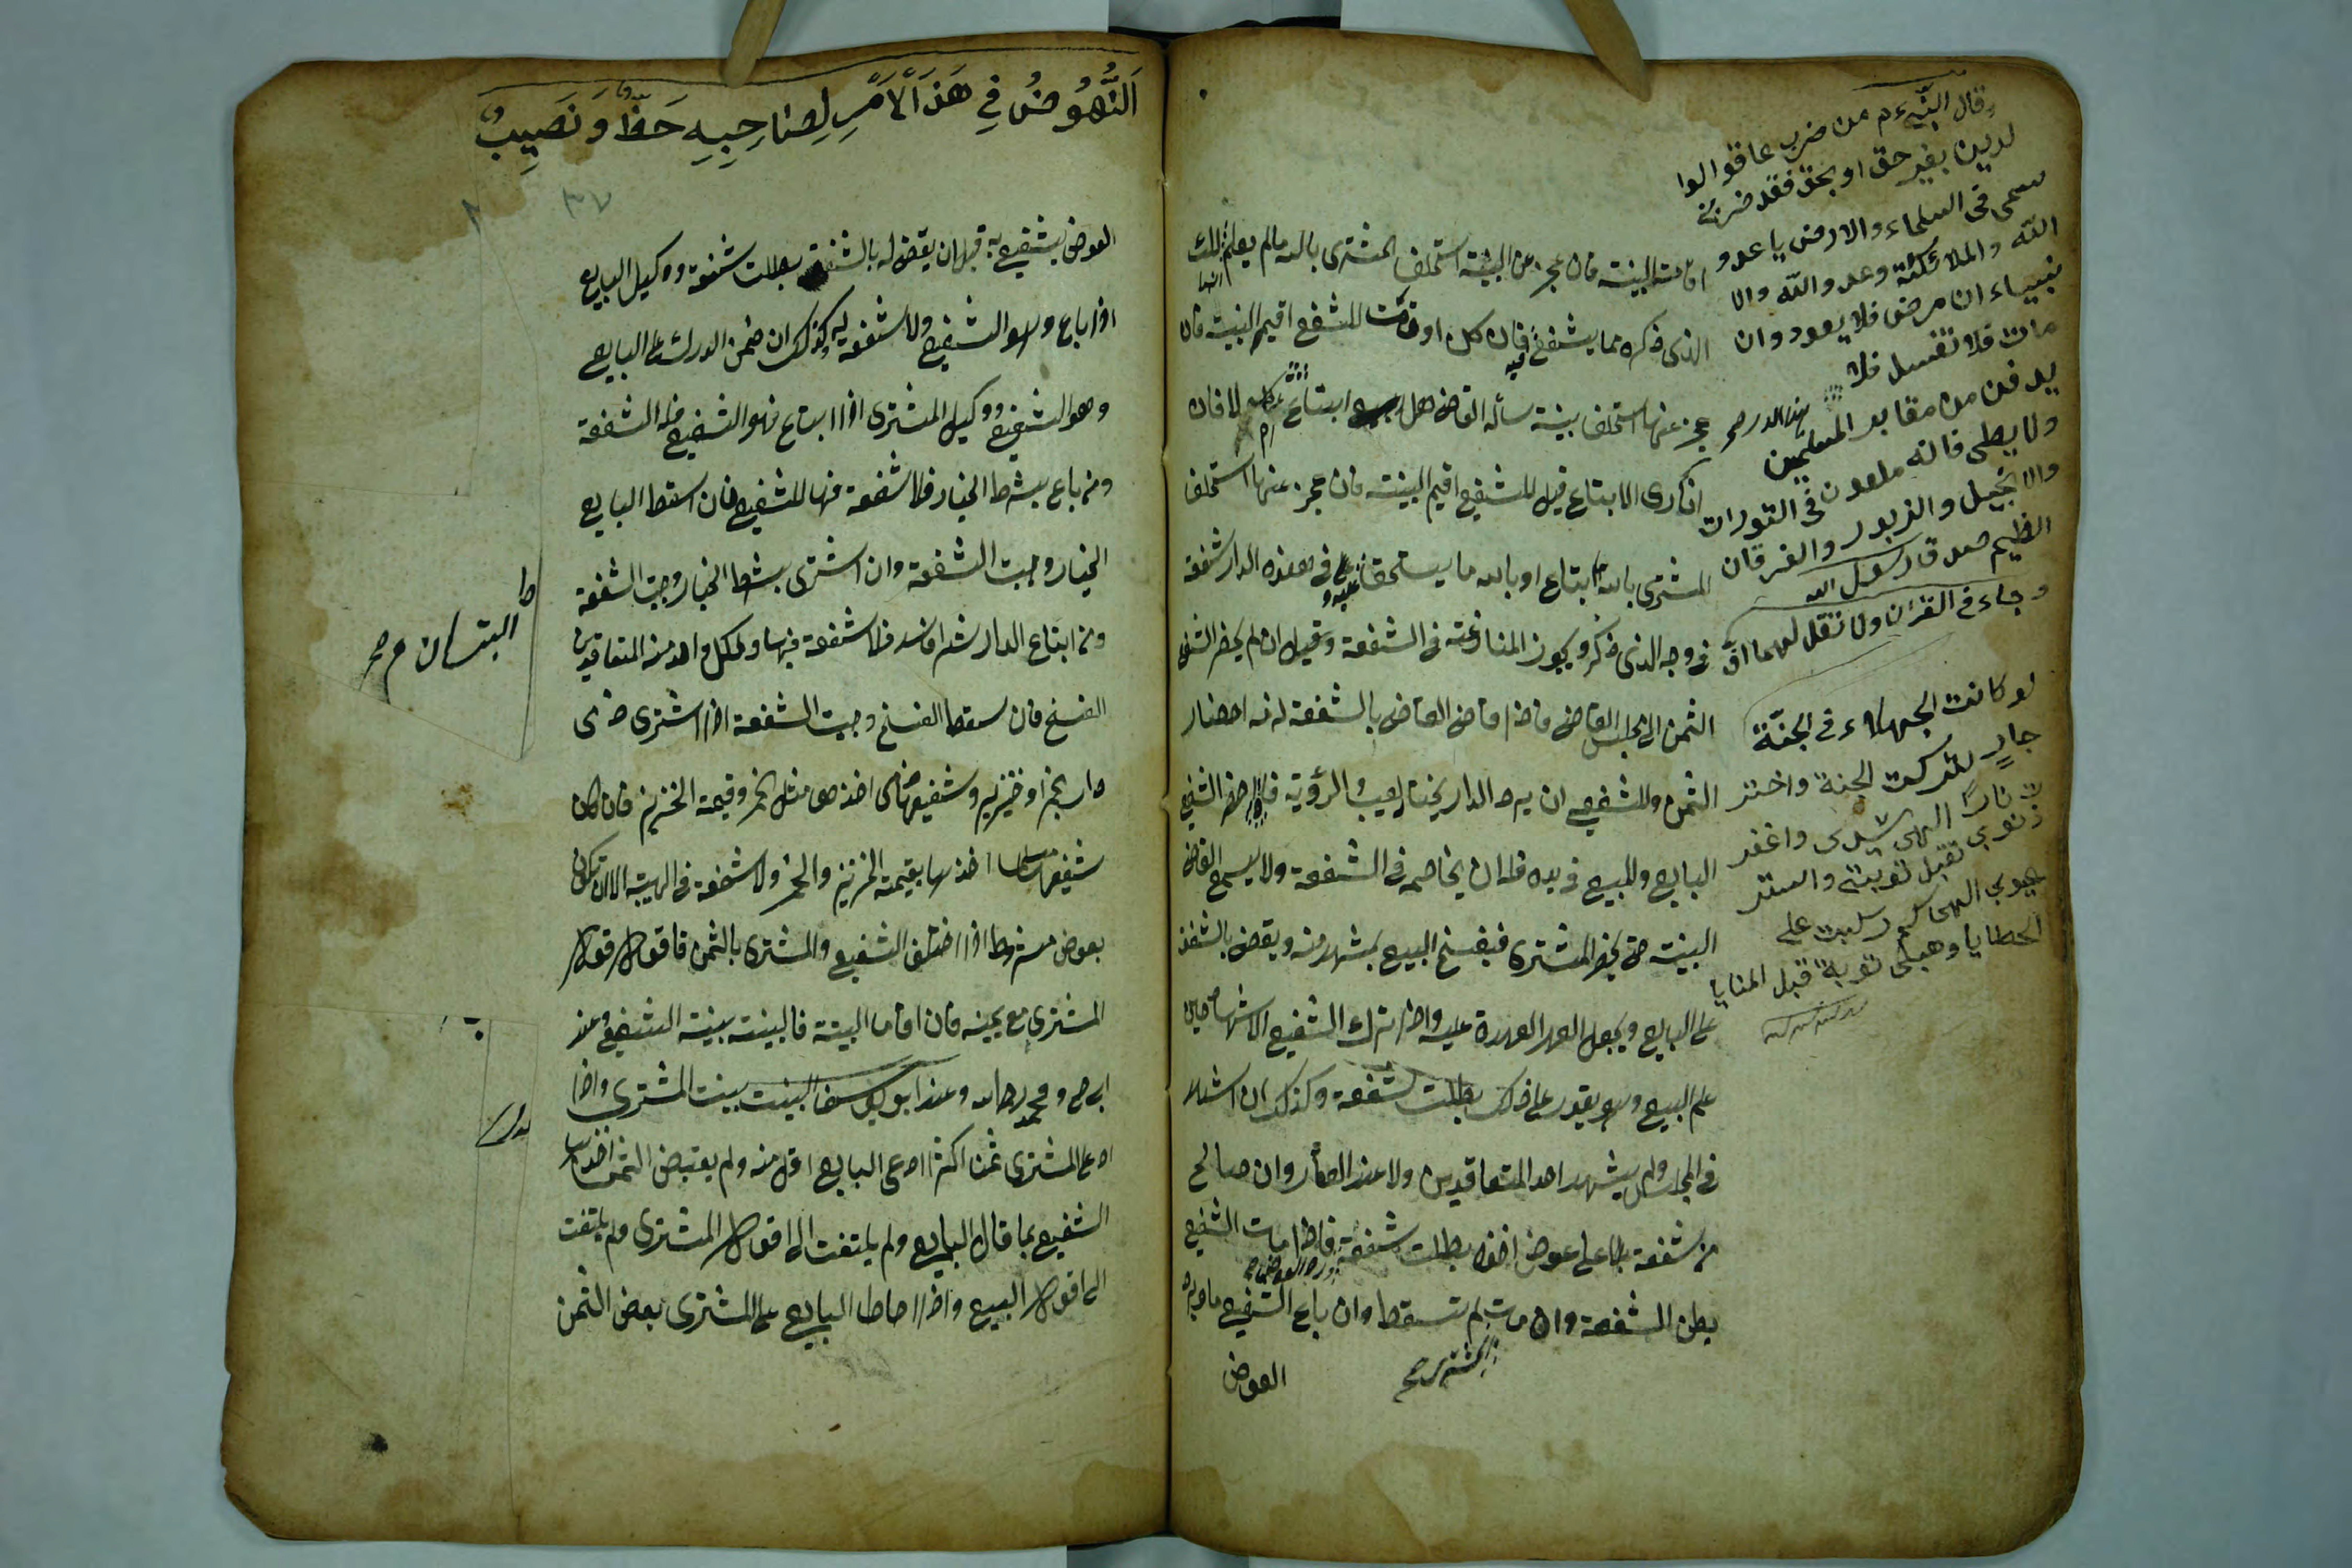 اقامت البينة فان عجز عن البينة استحلف المشترى بالله مالم يعلم انها ملك
الذى ذكره مما يشفع فيه فان نكل او قامت للشفيع اقيم البينة فان
عجز عنها استحلف بينة سأله القاضى هل ابتاع ام لا فان
انكرى الابتاع قيل للشفيع اقيم البينة فان عجز عنها استحلف
المشترى بالله ما ابتاع او بالله ما يستحق على فى هذه الدار شفعة
فى وجه الذى ذكر ويجوز المنازعة فى الشفعة وقيل ان لم يحضر الشفيع
الثمن الى مجلس القاضى فاذا قاضى القاضى بالشفعة لزمه احضار
الثمن وللشفيع ان يرد الدار بخيار العيب والرؤية فاذا احضر الشفيع
البايع والمبيع فى يده فله ان يخاصمه فى الشفعة ولا يسمع القاضى
البينة حتى يحضر المشترى فيفسخ البيع بمشهد منه ويقضى بالشفعة
على البايع ويجعل العهدة عليه واذا ترك الشفيع الاشهاد حين
علم البيع وهو يقدر على ذلك بطلت شفعة وكذلك ان اشهد
فى المجلس ولم يشهد احد المتعاقدين ولا عند العقار وان صالح
من شفعة على عوض اخذه بطلت شفعة ورد العوض فاذا مات الشفيع
بطن الشفعة وان مات المشترى لم تسقط وان باع الشفيع ما
العوض
وقال النبى ءم من ضرب عاقوالوا
لدين بغير حق او بحق فقد ضربة
سمى فى السماء والارض يا عدو
الله والملائكة وعدو الله والا
نبياء ان مرض فلا يعود وان
مات فلا تغسل فلا
يدفن من مقابر المسلمين
ولا يصلى فانه ملعون فى التورات
والانجيل والزبور والفرقان
العظيم صدق رسول الله
وجاء فى القرآن ولا تقل لهما اف
لو كانت الجهلاء فى الجنة
جار لتركت الجنة واختر
ت نارا الهى سيدى واغفر
ذنوبى تقبل توبتى واستر
عيوبى الهى كم ركبت على
الخطايا وهبلى توبة قبل المنايا
اَلنُّهُوضُ فِى هَذَ الْاَمْرِ لِصَاحِبِهِ حَظٌّ وَ نَصِيبٌ
٣٧
العوض يشفع به قبل ان يقضى له بالشفعة بطلت شفعة ووكيل البايع
اذا باع وهو الشفيع ولا شفعة له وكذلك ان ضمن الدرك على البايع
وهو الشفيع ووكيل المشترى اذا ابتاع فهو الشفيع فله الشفعة
ومن باع بشرط الخيار فلا شفعة فيها للشفيع فان اسقط البايع
الخيار وجبت الشفعة وان اشترى بشرط الخيار وجبت الشفعة
ومن ابتاع الدار شراء فاسدا فلا شفعة فيها ولكل واحد من المتعاقدين
الفسخ فان سقط الفسخ وجبت الشفعة اذا اشترى ذمى
دار بخمر او خنزير وشفيعها ذمى اخذها بمثل الخمر وقيمة الخنزير فان كان
شفيعها مسلما اخذها بقيمة الخنزير والخمر ولا شفعة فى الهبة الا ان تكون
بعوض مشروط اذا اختلف الشفيع والمشترى بالثمن فاقول قول
المشترى مع يمينه فان اقاما البينة فالبينة بينة الشفيع عند
ابى ح و محمد رح الله وعند ابو يوسف البينت بينت المشترى واذا
ادعى المشترى ثمنا اكثر ادعى البايع اقل منه ولم يقبض الثمن اخذها
الشفيع بما قال البايع ولم يلتفت الى اقول المشترى ولم يلتفت
الى اقول البيع واذا احاط البايع على المشترى بعض الثمن